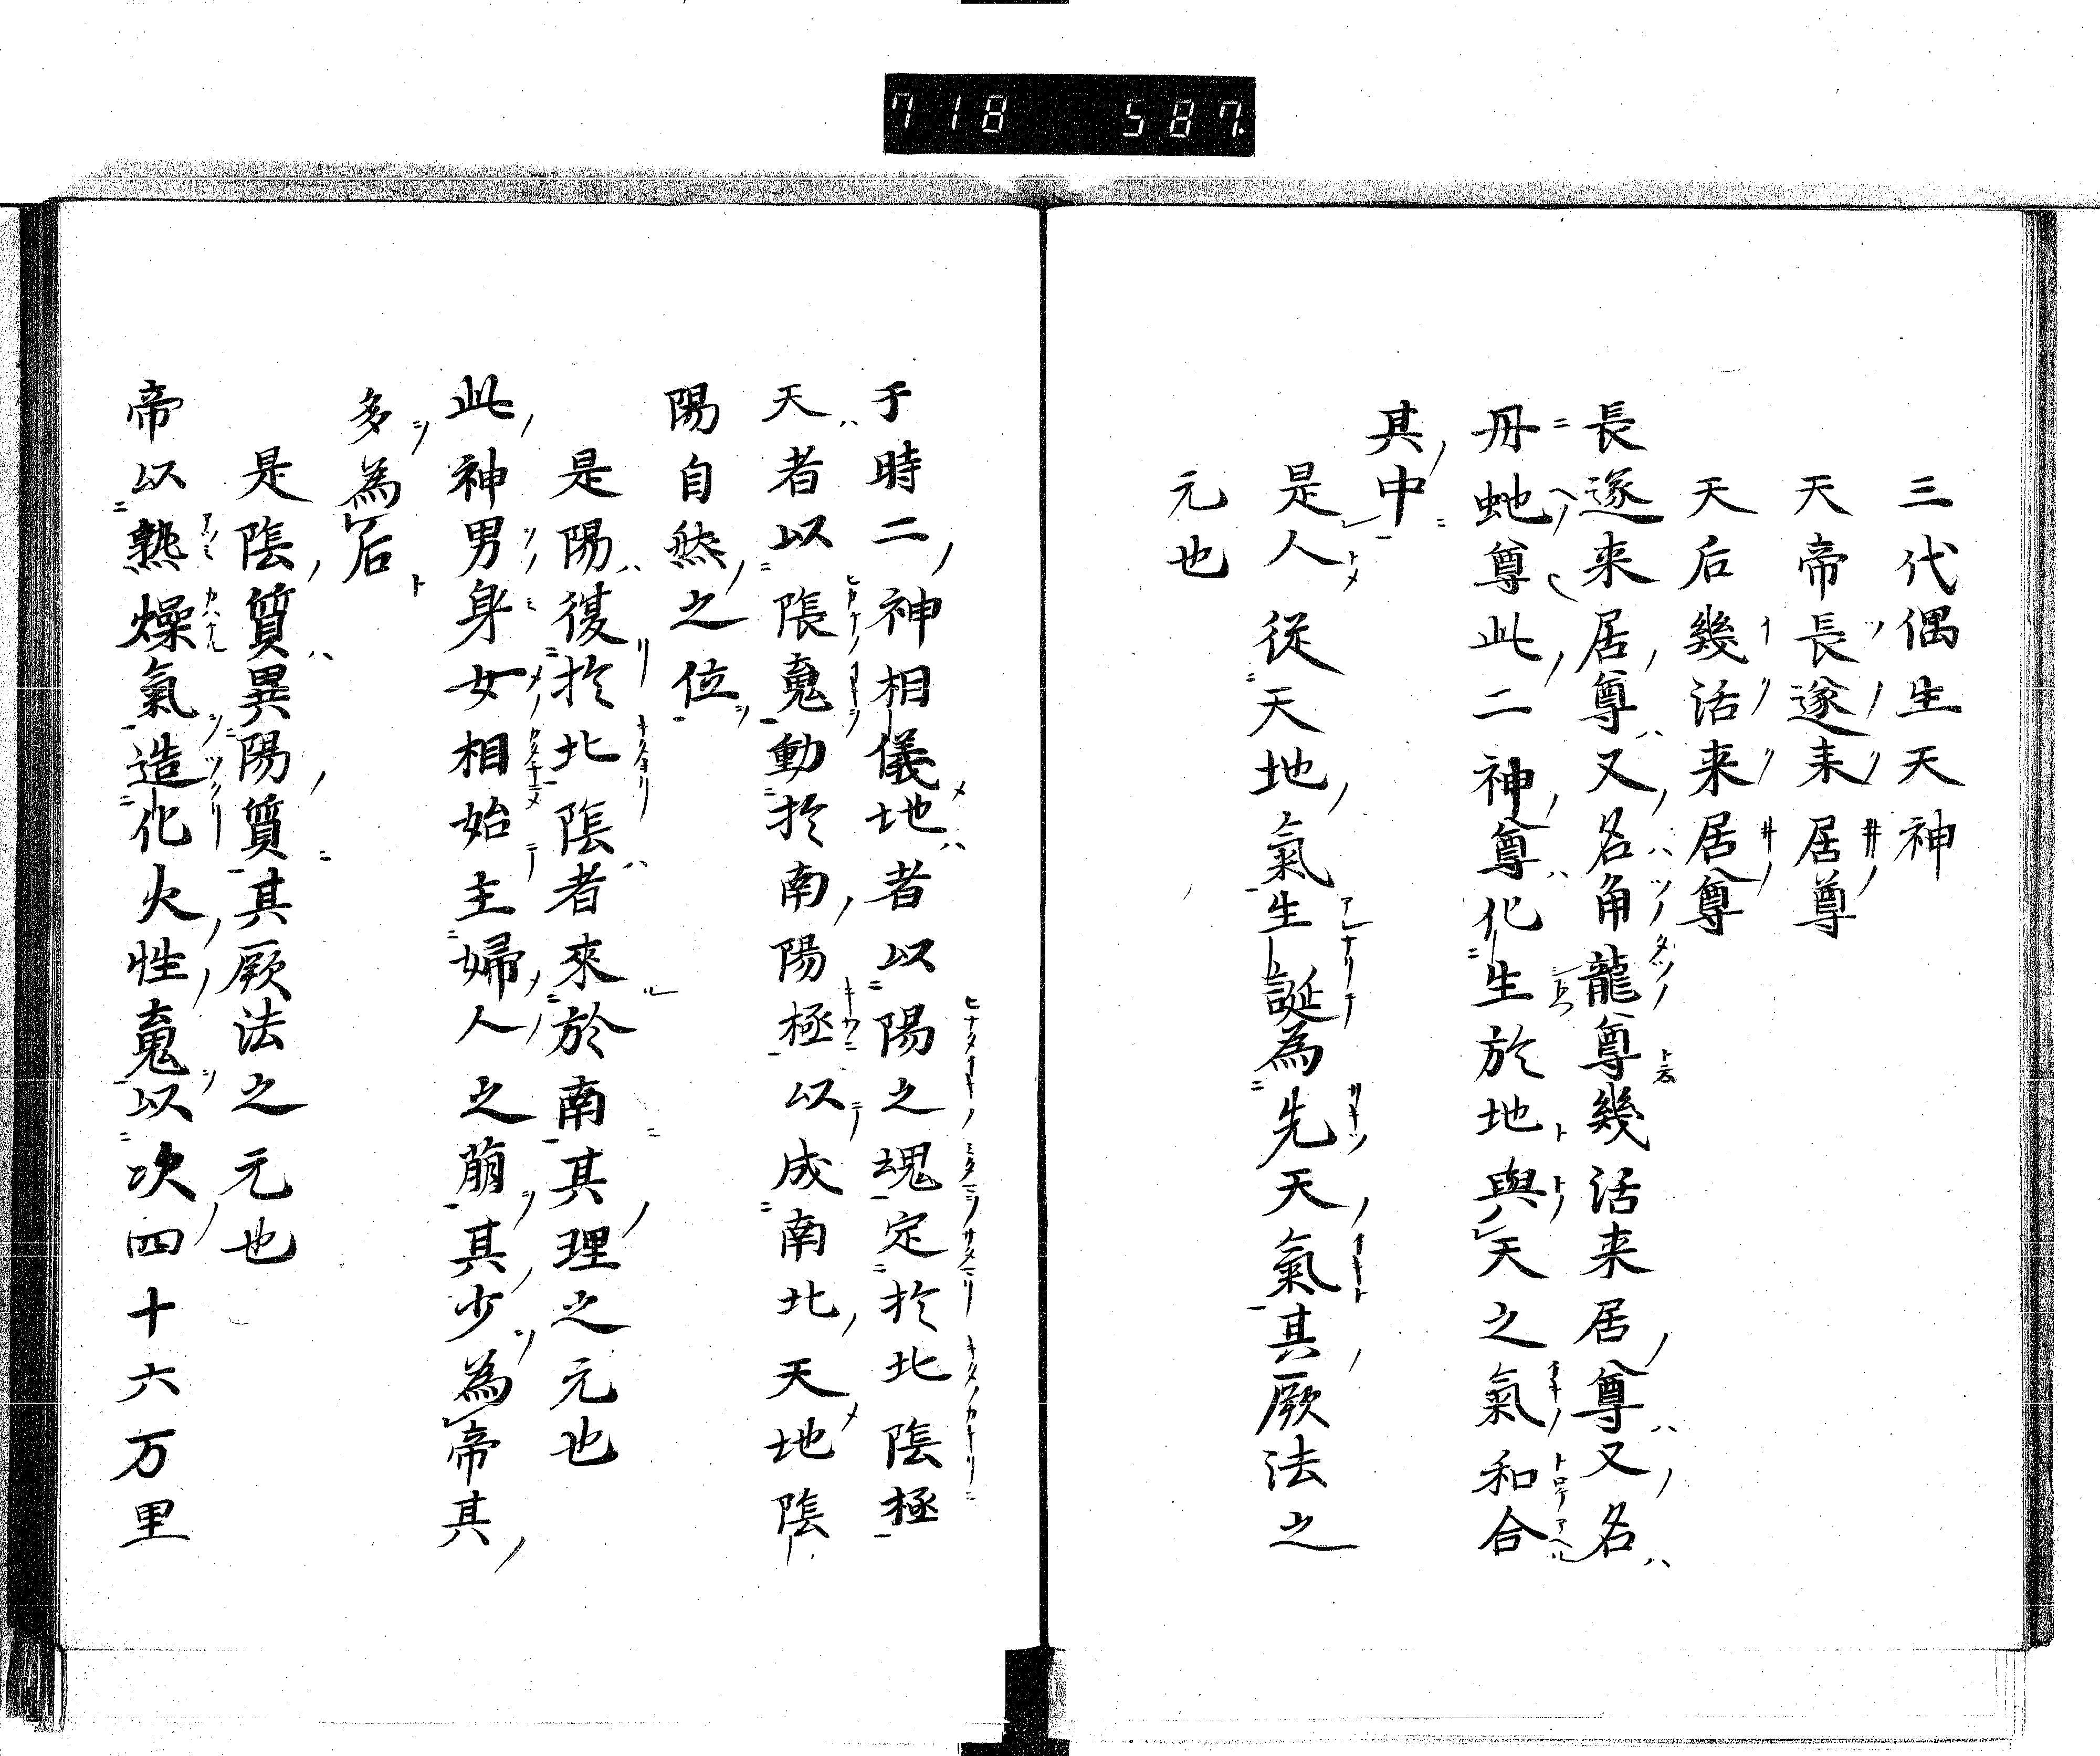 718 587
三代偶生天神
天帝長遂来居尊
天后幾活来居尊
長遂来居尊又名角龍尊幾活来居尊又名
丹虵尊此二神尊化生於地與天之氣和合
其中
是人從天地氣生誕為先天氣其厥法之
元也
于時二神相儀地者以陽之塊定於北陰極
天者以陰䰟動於南陽極以成南北天地陰
陽自然之位
是陽復於北陰者來於南其理之元也
此神男身女相始主婦人之萠其少為帝其
多為后
是陰質異陽質其厥法之元也
帝以熟燥氣造化火性䰟以次四十六万里